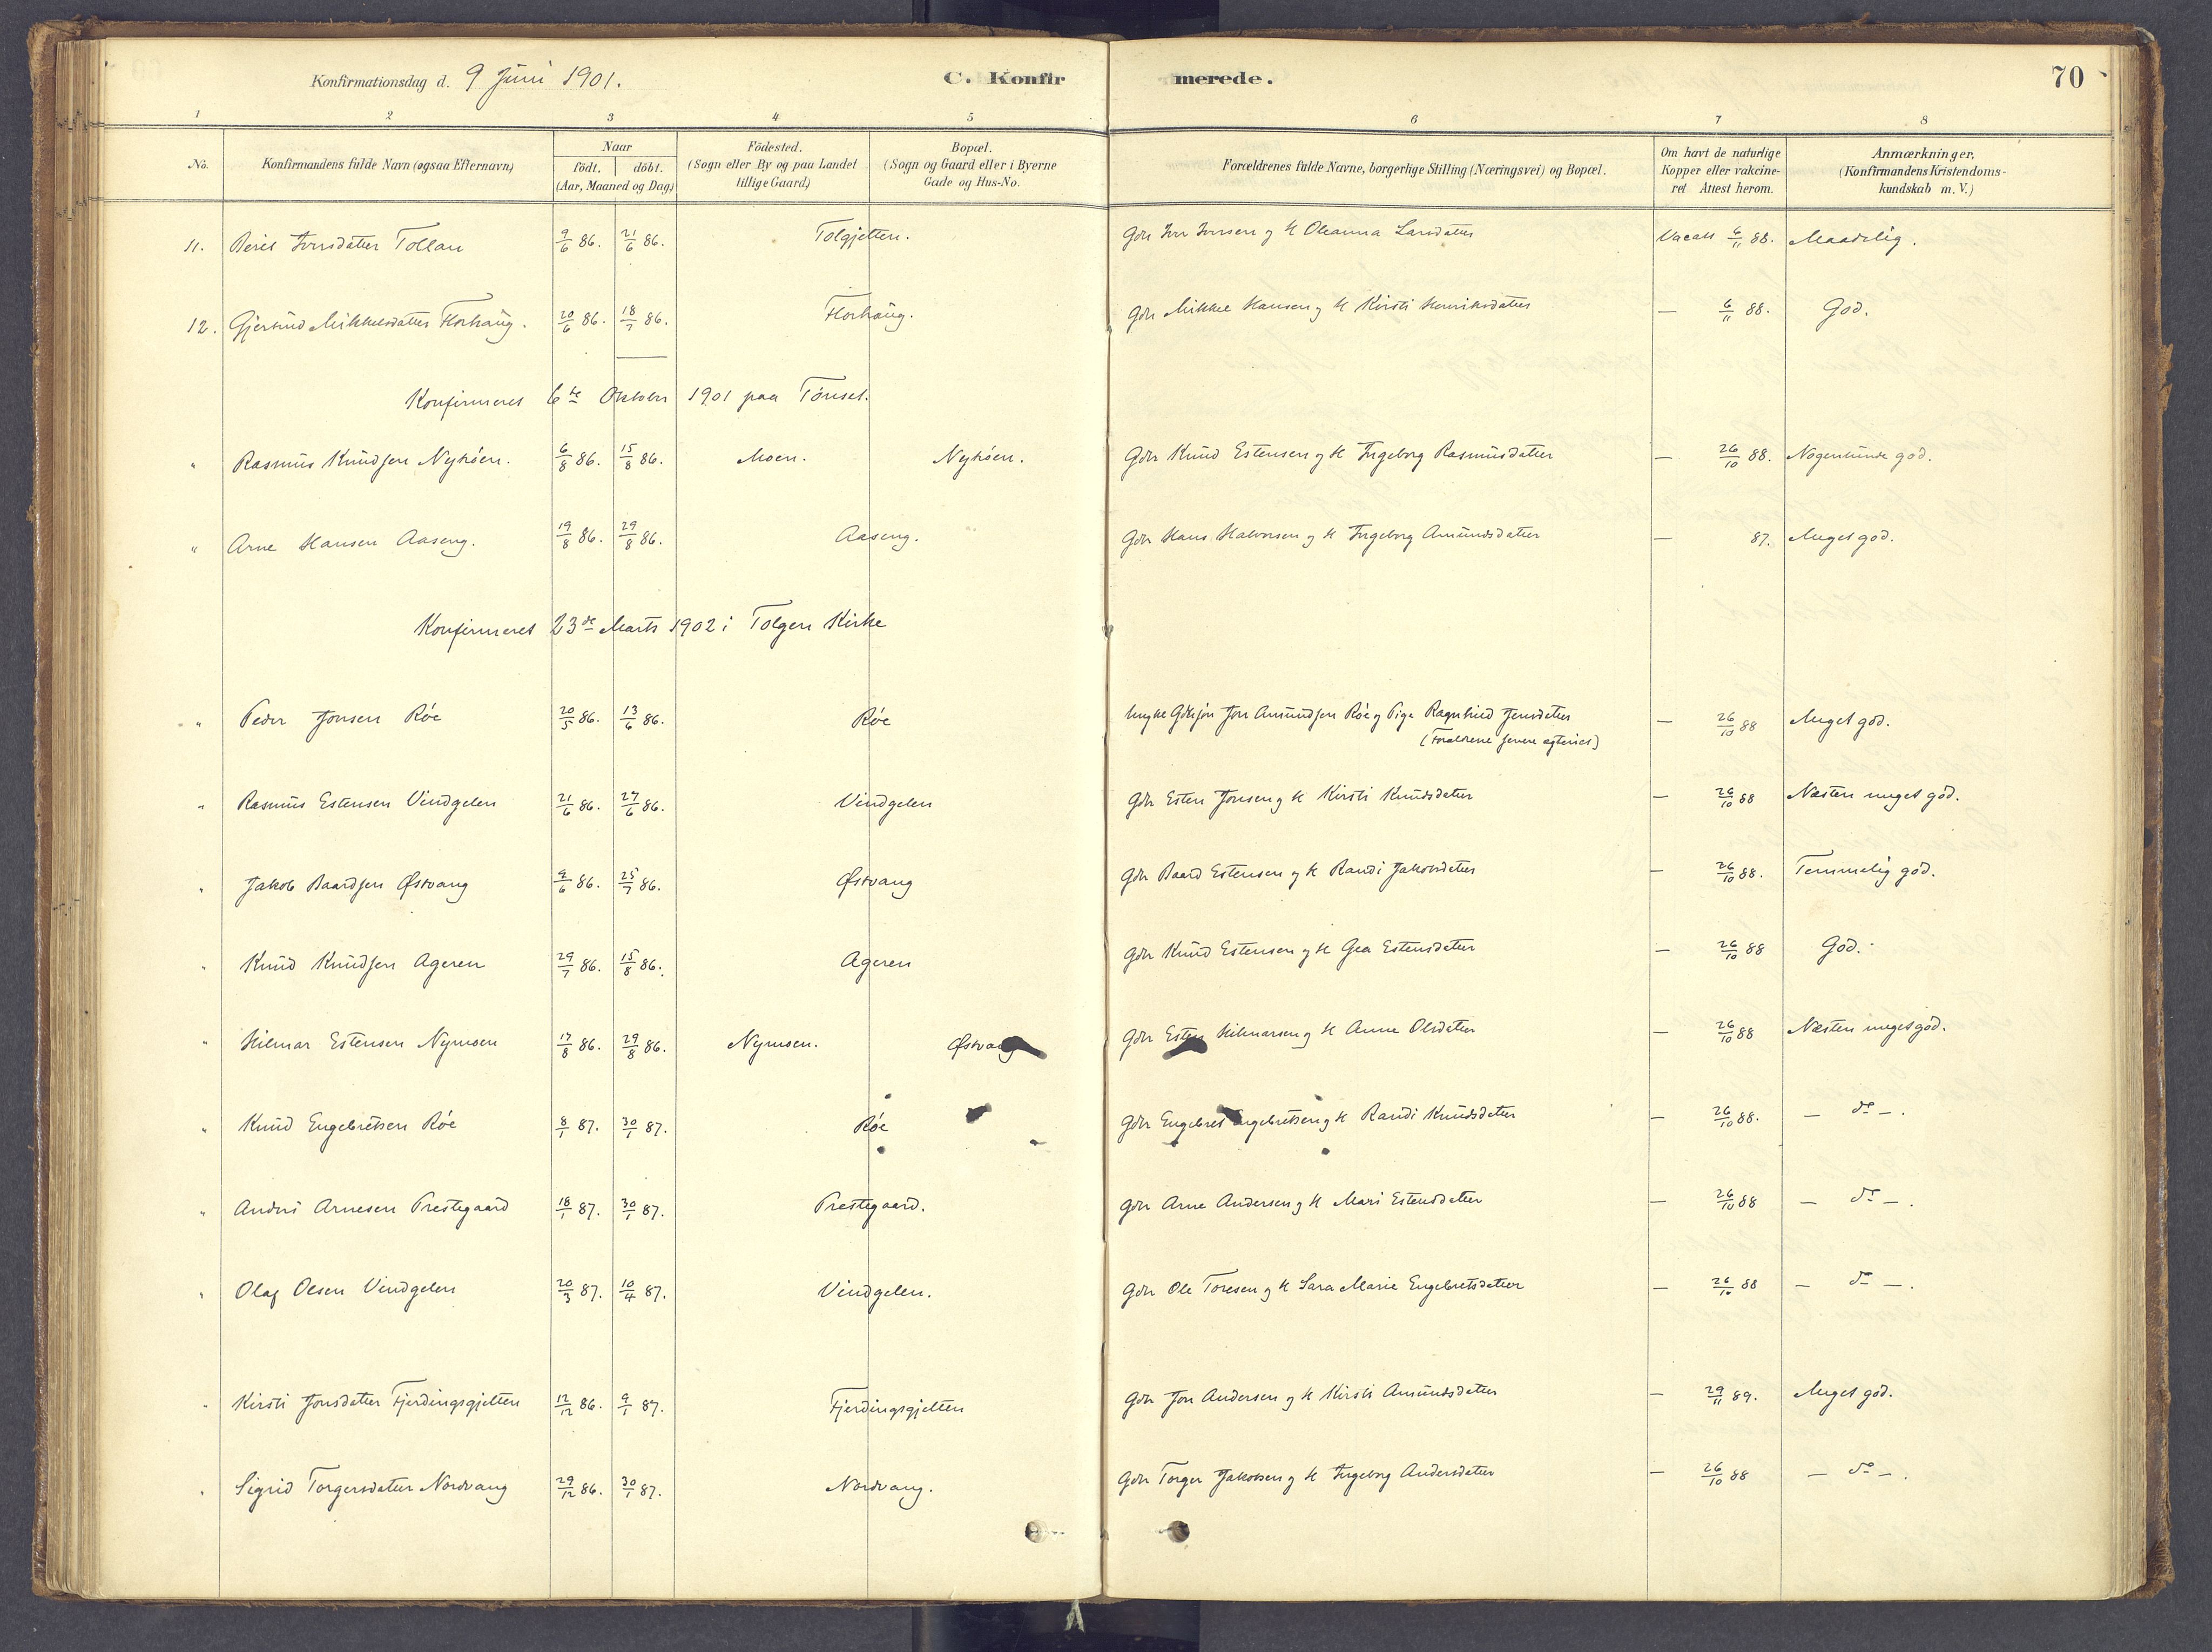 Konfirmationsdag d. 9 Juni 1901. C. Konfirmerede. 70
1 2 3 4 5 6 7 8
No. Konfirmandens fulde Navn (ogsaa Efternavn) Naar födt. döbt. (Aar, Maaned og Dag) Födested. (Sogn eller By og paa Landet tillige Gaard) Bopæl. (Sogn og Gaard eller i Byerne Gade og Hus-No. Forældrenes fulde Navne, borgerlige Stilling (Næringsvei) og Bopæl. Om havt de naturlige Kopper eller vakcineret Attest herom. Anmærkninger, (Konfirmandens Kristendomskundskab m. V.)
11. Berit Iversdatter Tollan 9/6 86. 21/6 86. Tolgjetten. Gbr Iver Iversen og H Oleanna Larsdatter Vacatt 6/11 88. Maadelig.
12. Gjertrud Mikkelsdatter Florhaug. 20/6 86. 18/7 86. Florhaug. Gbr Mikkel Hansen og H Kirsti Henriksdatter — 6/11 88. God.
Konfirmeret 6te Oktober 1901 paa Tönset.
" Rasmus Knudsen Nyhöen. 6/8 86. 15/8 86. Moen. Nyhöen. Gbr Knud Estensen og H Ingeborg Rasmusdatter — 26/10 88. Nogenlunde god.
" Arne Hansen Aaseng. 19/8 86. 29/8 86. Aaseng. Gbr Hans Halvorsen og H Ingeborg Amundsdatter — 87. Meget god.
Konfirmeret 23de Marts 1902 i Tolgen Kirke
" Peder Jonsen Röe 20/5 86. 13/6 86. Röe Ungkl Gbrsön Jon Amundsen Röe og Pige Ragnhild Jensdatter — 26/10 88 Meget god.
(Forældrene senere egteviet)
" Rasmus Estensen Vindgelen 21/6 86. 27/6 86. Vindgelen Gbr Esten Jonsen og H Kirsti Knudsdatter — 26/10 88 Næsten meget god.
" Jakob Baardsen Østvang 9/6 86. 25/7 86. Østvang Gbr Baard Estensen og H Randi Jakobsdatter — 26/10 88. Temmelig god.
" Knud Knudsen Ageren 29/7 86. 15/8 86. Ageren Gbr Knud Estensen og H Gea Estensdatter — 26/10 88 God.
" Hilmar Estensen Nymoen 17/8 86. 29/8 86. Nymoen. Østvang Gbr Esten Hilmarsen og H Anne Olsdatter — 26/10 88 Næsten meget god.
" Knud Engebretsen Röe 8/1 87. 30/1 87. Röe Gbr Engebret Engebretsen og H Randi Knudsdatter — 26/10 88. — do —.
" Anders Arnesen Prestegaard 18/1 87. 30/1 87. Prestegaard. Gbr Arne Andersen og H Mari Estensdatter — 26/10 88 — do —.
" Olaf Olsen Vindgelen 20/3 87. 10/4 87. Vindgelen. Gbr Ole Toresen og H Sara Marie Engebretsdatter — 26/10 88 — do —.
" Kirsti Jonsdatter Fjerdingsgjelten 12/12 86. 9/1 87. Fjerdingsgjelten Gbr Jon Andersen og H Kirsti Amundsdatter — 29/11 89. Meget god.
" Sigrid Torgersdatter Nordvang 29/12 86. 30/1 87. Nordvang. Gbr Torger Jakobsen og H Ingeborg Andersdatter — 26/10 88 — do —.